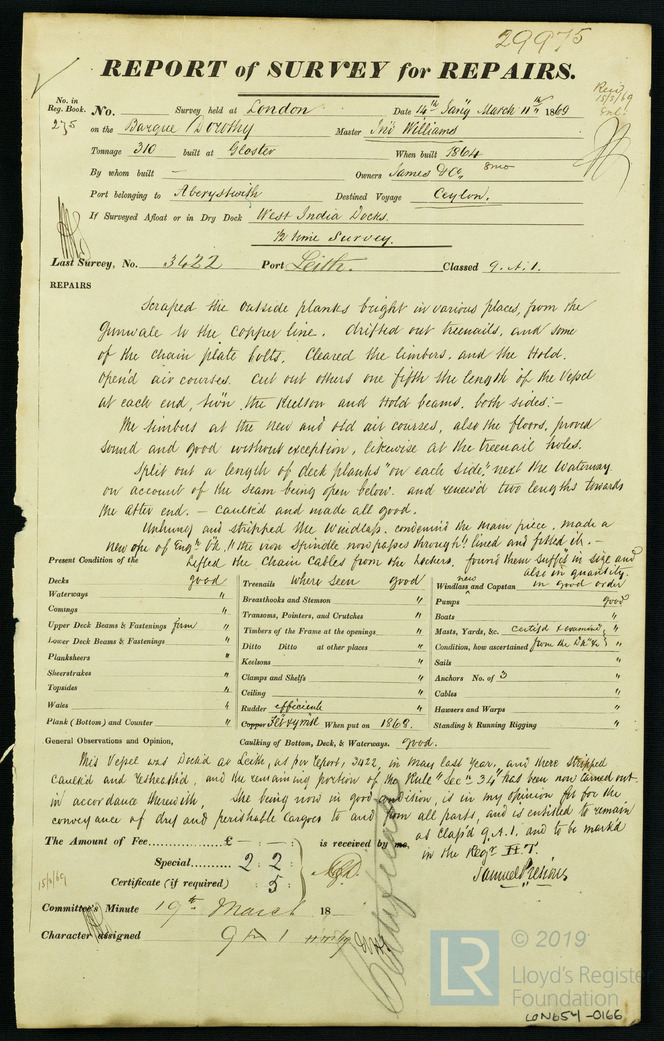 29975
REPORT of SURVEY for REPAIRS.
No. in Reg. Book. No. Survey held at London Date 14th Jany March 11th 1869
Recd 15/3/69
275 on the Barque Dorothy Master Jno Williams
Tonnage 310 built at Gloster When built 1864
8mo
By whom built — Owners James & Co,
Port belonging to Aberystwith Destined Voyage Ceylon.
If Surveyed Afloat or in Dry Dock West India Docks.
½ time Survey.
Last Survey, No. 3422 Port Leith. Classed 9. A. 1.
REPAIRS
Scraped the outside planks bright in various places, from the
Gunwale to the copper line. drifted out treenails, and some
of the chain plate bolts, Cleared the limbers, and the Hold.
Open'd air courses. Cut out others one fifth the length of the Vessel
at each end, btw'n the Keelson and Hold beams, both sides:-
The timbers at the new and old air courses, also the floors, proved
sound and good without exception, likewise at the treenail holes.
Split out a length of deck planks "on each side," next the Waterway
on account of the seam being open below. and renew'd two lengths towards
the after end. – caulk'd and made all good.
Unhung and stripped the Windlass, condemned the main piece, made a
new one of Engh Ok, "the iron spindle now passes through", lined and fitted it. –
Lifted the Chain Cables from the Lockers. found them suffit in size and
also in quantity.
Present Condition of the
Decks good Treenails where seen good Windlass and Capstan new in good order
Waterways " Breasthooks and Stemson " Pumps good
Comings " Transoms, Pointers, and Crutches " Boats "
Upper Deck Beams & Fastenings firm " Timbers of the Frame at the openings " Masts, Yards, &c. certif'd & examined "
Lower Deck Beams & Fastenings " Ditto Ditto at other places " Condition, how ascertained from the Dk &c "
Planksheers " Keelsons " Sails "
Sheerstrakes " Clamps and Shelfs " Anchors No. of 3 "
Topsides " Ceiling " Cables "
Wales " Rudder efficient " Hawsers and Warps "
Plank (Bottom) and Counter " Copper Felt & y met When put on 1868. Standing & Running Rigging "
General Observations and Opinion, Caulking of Bottom, Deck, & Waterways. good.
This Vessel was Dock'd at Leith, as per Report, 3422, in May last year, and there stripped
caulk'd and resheath'd, and the remaining portion of the Rule "Secn 34" has been now carried out
in accordance therewith, She being now in good condition, is in my opinion fit for the
conveyance of dry and perishable Cargoes to and from all parts, and is entitled to remain
as class'd 9. A. 1, and to be mark'd
in the Regr H.T.
The Amount of Fee £ — : — : is received by me,
Special 2 : 2 :
Certificate (if required) 5 :
15/3/69
Samuel Pretious
Certificate
Committee's Minute 19th March 18
Character assigned 9 A 1
© 2019
LR
Lloyd's Register
Foundation
LON654-0166